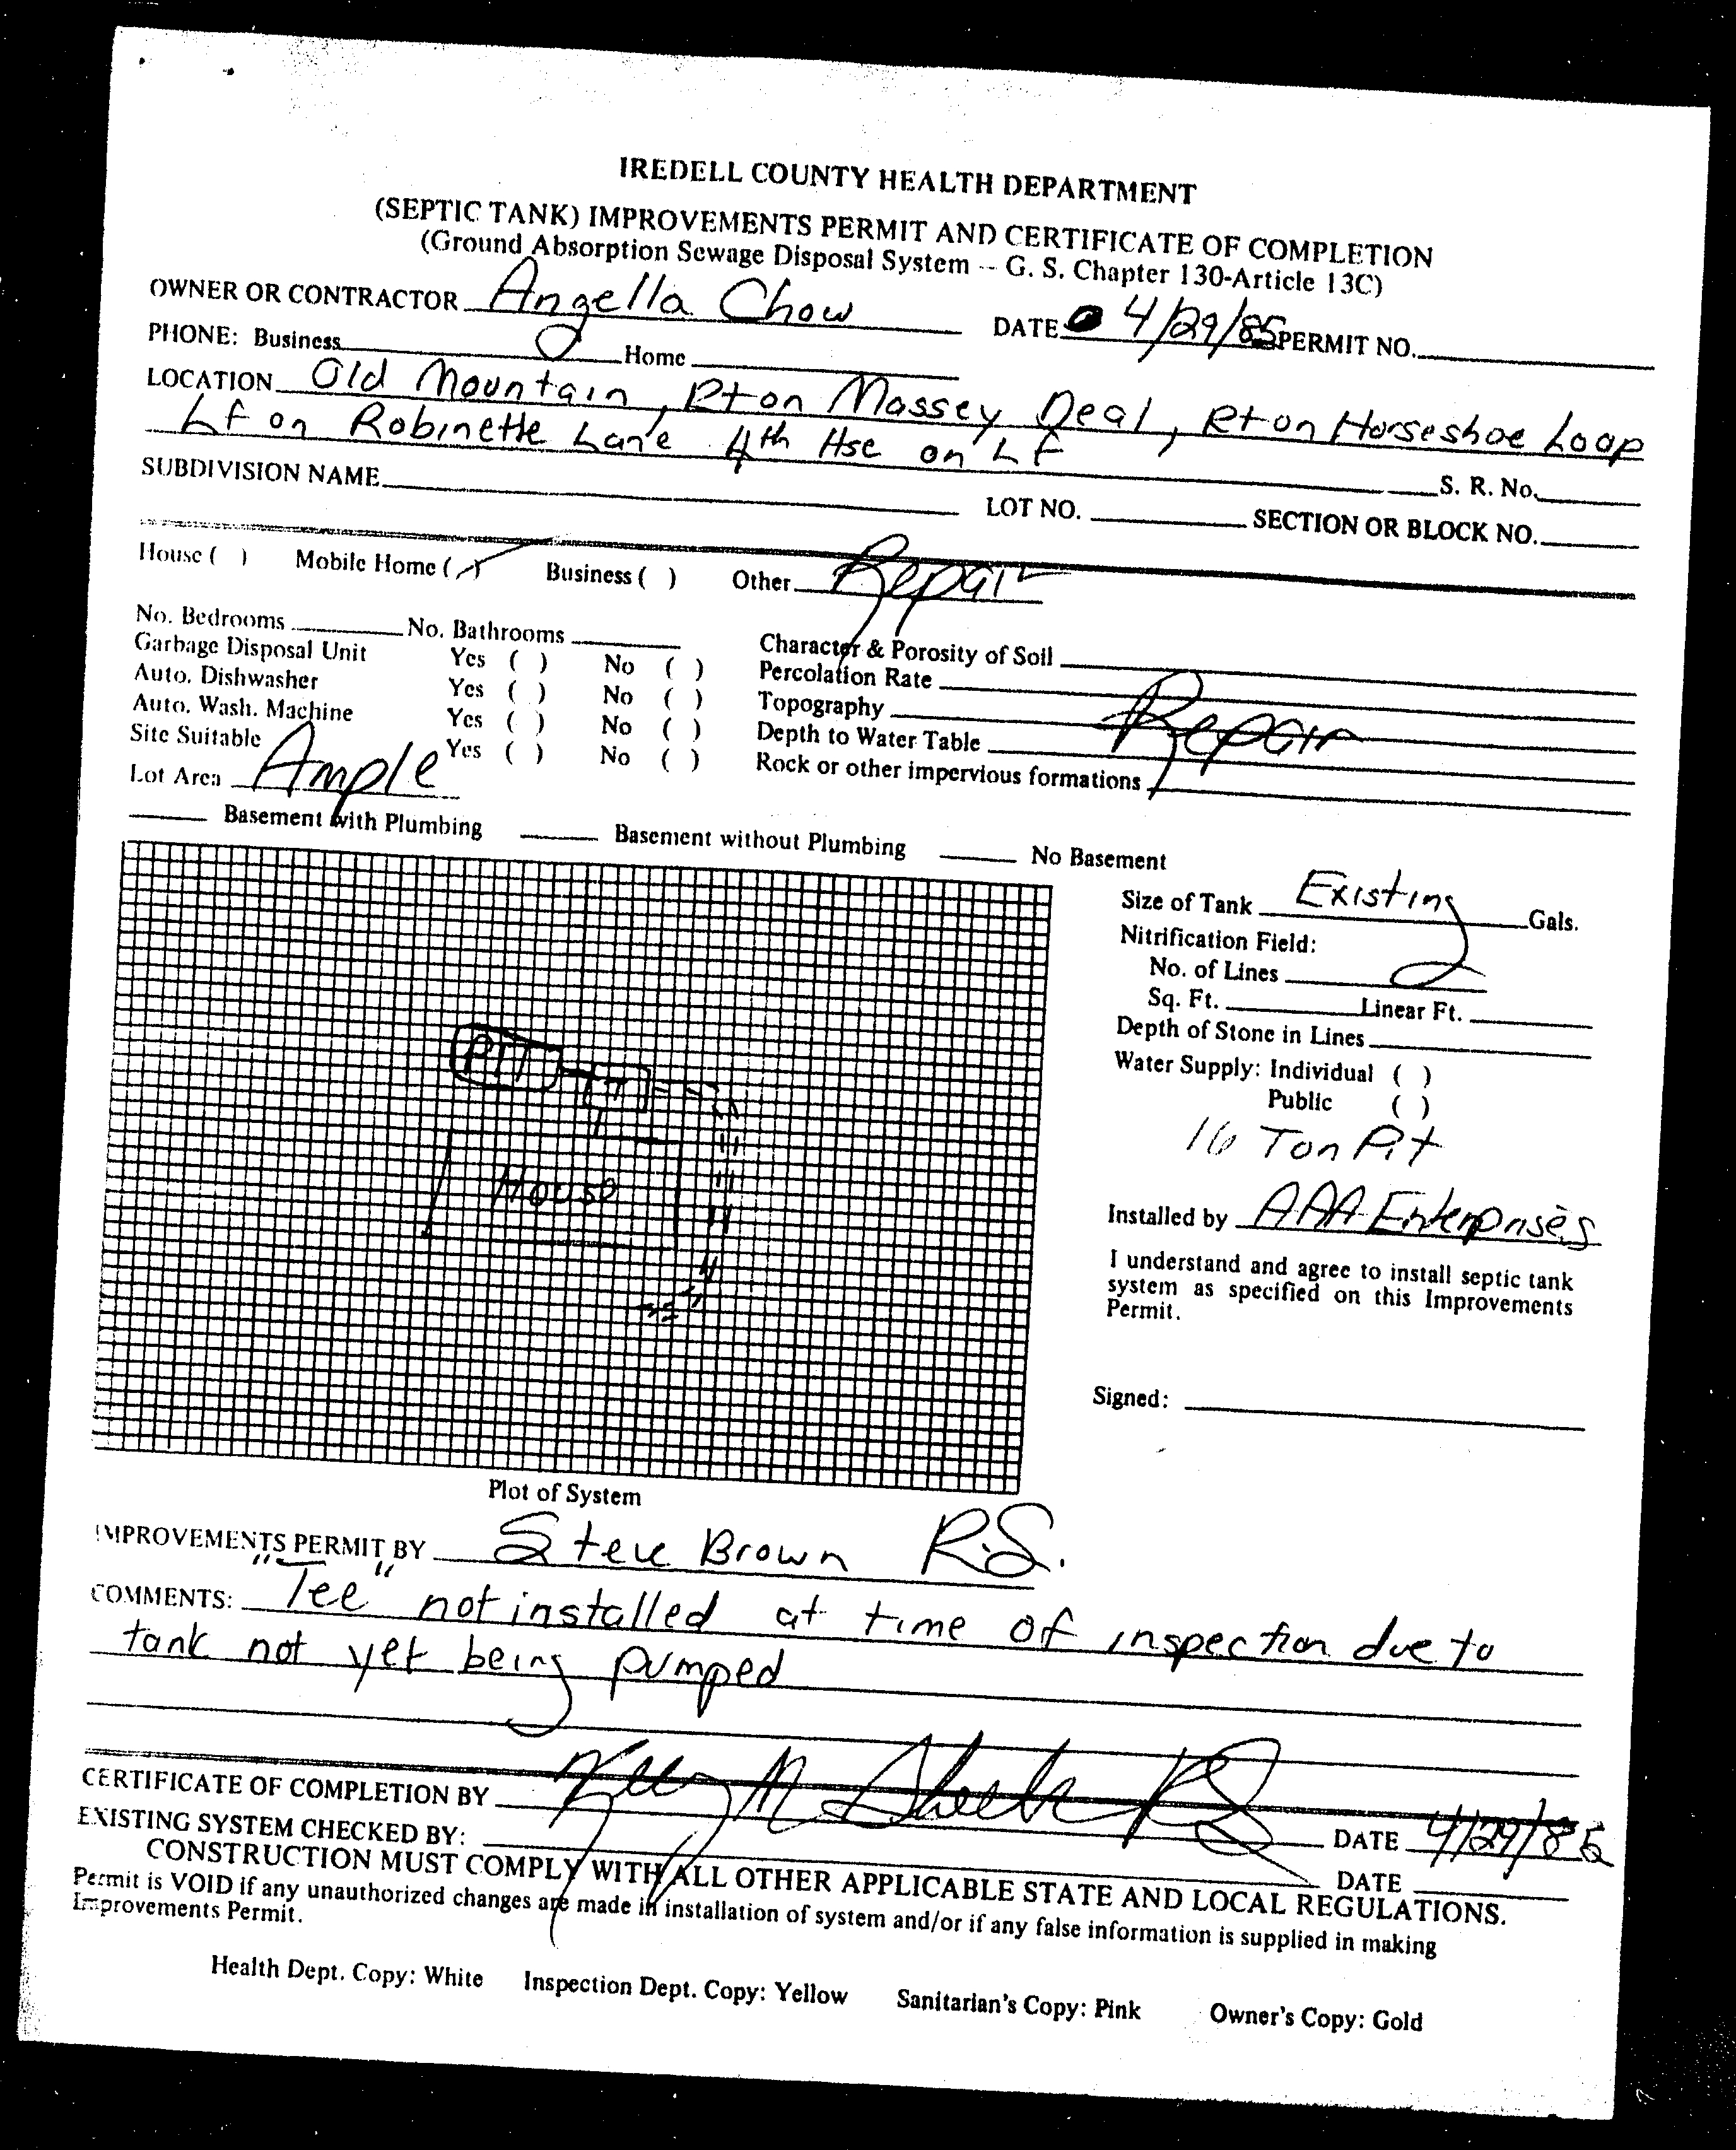 IREDELL COUNTY HEALTH DEPARTMENT
(SEPTIC TANK) IMPROVEMENTS PERMIT AND CERTIFICATE OF COMPLETION
(Ground Absorption Sewage Disposal System -- G. S. Chapter 130-Article 13C)
OWNER OR CONTRACTOR Angella Chow DATE 4/29/85 PERMIT NO.
PHONE: Business Home
LOCATION Old Mountain, Rt on Massey Deal, Rt on Horseshoe Loop
Lf on Robinette Lane 4th Hse on Lf S. R. No.
SUBDIVISION NAME LOT NO. SECTION OR BLOCK NO.
House ( ) Mobile Home (✓) Business ( ) Other Repair
No. Bedrooms No. Bathrooms Character & Porosity of Soil
Garbage Disposal Unit Yes ( ) No ( ) Percolation Rate
Auto. Dishwasher Yes ( ) No ( ) Topography Repair
Auto. Wash. Machine Yes ( ) No ( ) Depth to Water Table
Site Suitable Yes ( ) No ( ) Rock or other impervious formations
Lot Area Ample
Basement with Plumbing Basement without Plumbing No Basement
Size of Tank Existing Gals.
Nitrification Field:
No. of Lines
Sq. Ft. Linear Ft.
Depth of Stone in Lines
Water Supply: Individual ( )
Public ( )
16 Ton Pit
Installed by AAA Enterprises
I understand and agree to install septic tank
system as specified on this Improvements
Permit.
Signed:
PIT
House
Plot of System
IMPROVEMENTS PERMIT BY Steve Brown R.S.
COMMENTS: "Tee" not installed at time of inspection due to
tank not yet being pumped
CERTIFICATE OF COMPLETION BY RS DATE 4/29/85
EXISTING SYSTEM CHECKED BY: DATE
CONSTRUCTION MUST COMPLY WITH ALL OTHER APPLICABLE STATE AND LOCAL REGULATIONS.
Permit is VOID if any unauthorized changes are made in installation of system and/or if any false information is supplied in making
Improvements Permit.
Health Dept. Copy: White Inspection Dept. Copy: Yellow Sanitarian's Copy: Pink Owner's Copy: Gold